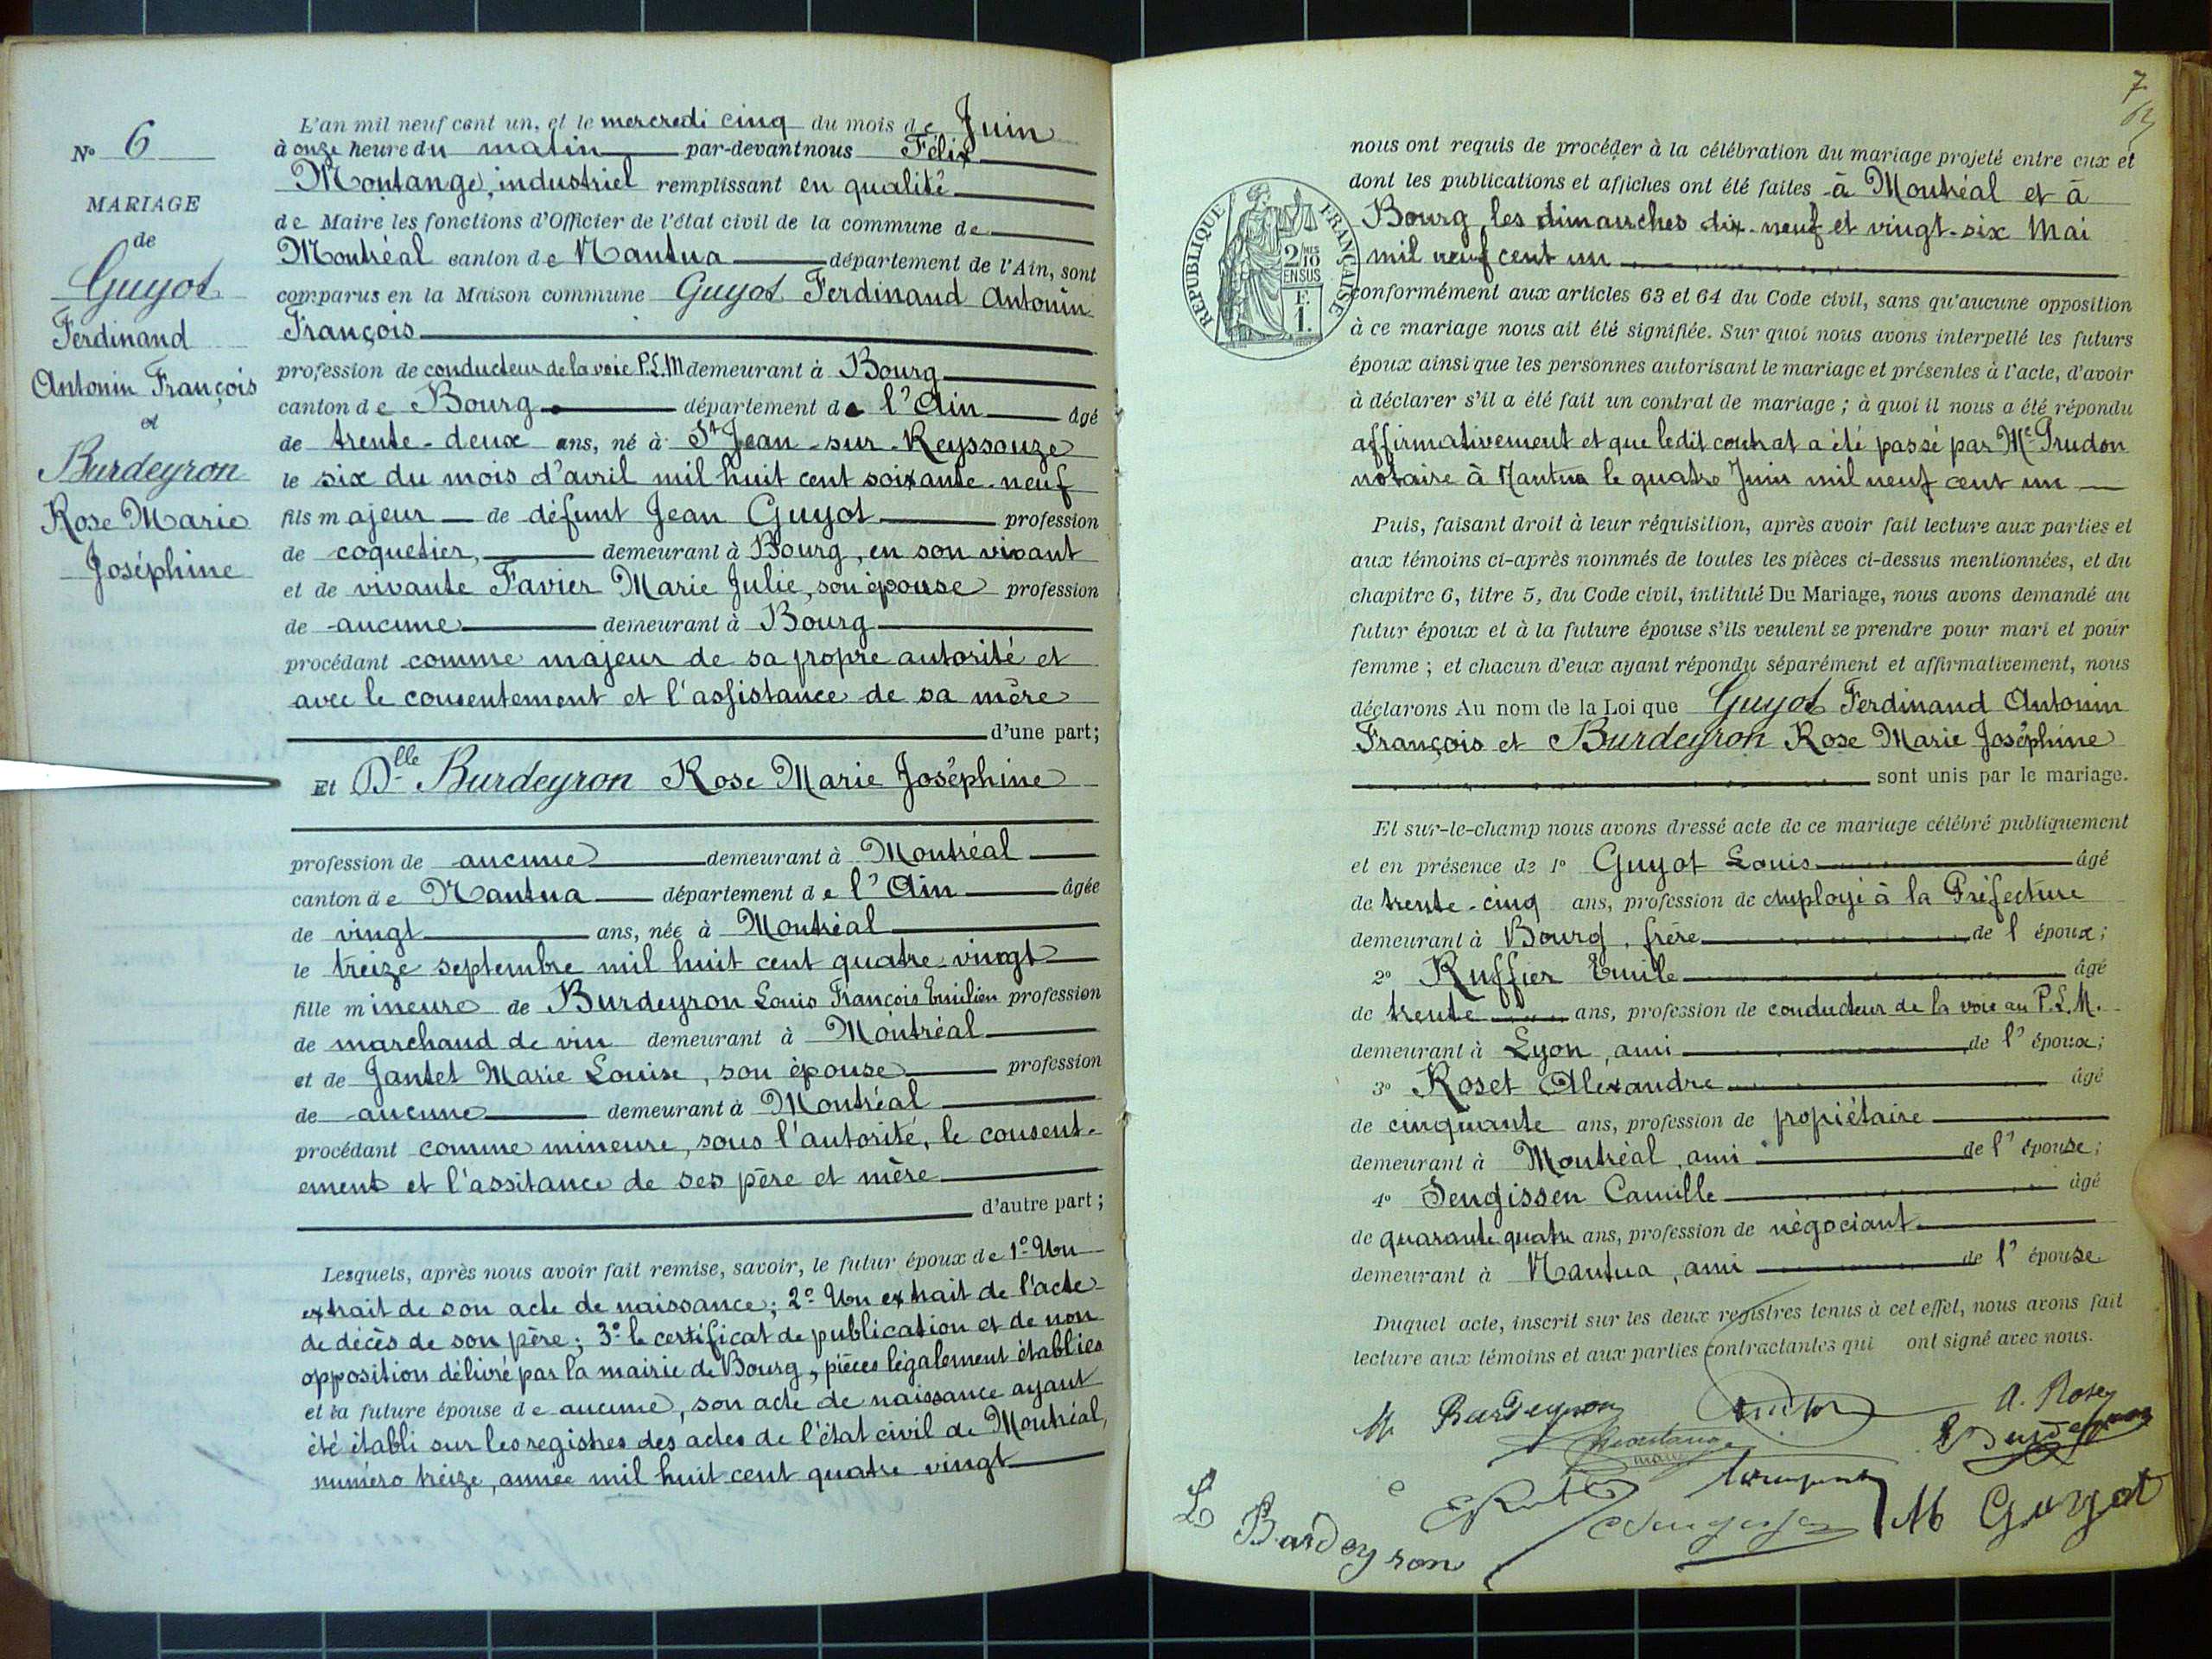 N° 6
MARIAGE
de
Guyot
Ferdinand
Antonin François
et
Burdeyron
Rose Marie
Joséphine
L'an mil neuf cent un, et le mercredi cinq du mois de Juin
à onze heure du matin par-devant nous Félix
Montange, industriel remplissant en qualité
de Maire les fonctions d'Officier de l'état civil de la commune de
Montréal canton de Nantua département de l'Ain, sont
comparus en la Maison commune Guyot Ferdinand Antonin
François
profession de conducteur de la voie P.L.M demeurant à Bourg
canton de Bourg département de l'Ain âgé
de trente-deux ans, né à St Jean-sur-Reyssouze
le six du mois d'avril mil huit cent soixante-neuf
fils majeur de défunt Jean Guyot profession
de coquetier, demeurant à Bourg, en son vivant
et de vivante Favier Marie Julie, son épouse profession
de aucune demeurant à Bourg
procédant comme majeur de sa propre autorité et
avec le consentement et l'assistance de sa mère
d'une part;
Et Dlle Burdeyron Rose Marie Joséphine
profession de aucune demeurant à Montréal
canton de Nantua département de l'Ain âgée
de vingt ans, née à Montréal
le treize septembre mil huit cent quatre-vingt
fille mineure de Burdeyron Louis François Emilien profession
de marchand de vin demeurant à Montréal
et de Jantet Marie Louise, son épouse profession
de aucune demeurant à Montréal
procédant comme mineure, sous l'autorité, le consent-
ement et l'assitance de ses père et mère
d'autre part;
Lesquels, après nous avoir fait remise, savoir, le futur époux de 1° Un
extrait de son acte de naissance; 2° Un extrait de l'acte
de décès de son père; 3° le certificat de publication et de non
opposition délivré par la mairie de Bourg, pièces légalement établies
et la future épouse de aucune, son acte de naissance ayant
été établi sur les registres des actes de l'état civil de Montréal,
numéro treize, année mil huit cent quatre-vingt
7
RÉPUBLIQUE FRANÇAISE
2/10
EN SUS
F.
1.
nous ont requis de procéder à la célébration du mariage projeté entre eux et
dont les publications et affiches ont été faites à Montréal et à
Bourg, les dimanches dix-neuf et vingt-six Mai
mil neuf cent un
conformément aux articles 63 et 64 du Code civil, sans qu'aucune opposition
à ce mariage nous ait été signifiée. Sur quoi nous avons interpellé les futurs
époux ainsi que les personnes autorisant le mariage et présentes à l'acte, d'avoir
à déclarer s'il a été fait un contrat de mariage; à quoi il nous a été répondu
affirmativement et que ledit contrat a été passé par Me Prudon
notaire à Nantua le quatre Juin mil neuf cent un
Puis, faisant droit à leur réquisition, après avoir fait lecture aux parties et
aux témoins ci-après nommés de toutes les pièces ci-dessus mentionnées, et du
chapitre 6, titre 5, du Code civil, intitulé Du Mariage, nous avons demandé au
futur époux et à la future épouse s'ils veulent se prendre pour mari et pour
femme; et chacun d'eux ayant répondu séparément et affirmativement, nous
déclarons Au nom de la Loi que Guyot Ferdinand Antonin
François et Burdeyron Rose Marie Joséphine
sont unis par le mariage.
Et sur-le-champ nous avons dressé acte de ce mariage célébré publiquement
et en présence de 1° Guyot Louis âgé
de trente-cinq ans, profession de employé à la Préfecture
demeurant à Bourg, frère de l époux;
2° Ruffier Emile âgé
de trente ans, profession de conducteur de la voie au P.L.M.
demeurant à Lyon, ami de l'époux;
3° Roset Alexandre âgé
de cinquante ans, profession de propiétaire
demeurant à Montréal, ami de l'épouse;
4° Sengissen Camille âgé
de quarante quatre ans, profession de négociant
demeurant à Nantua, ami de l'épouse
Duquel acte, inscrit sur les deux registres tenus à cet effet, nous avons fait
lecture aux témoins et aux parties contractantes qui ont signé avec nous.
M Burdeyron
A. Roset
Montange
Burdeyron
L Burdeyron
M Guyot